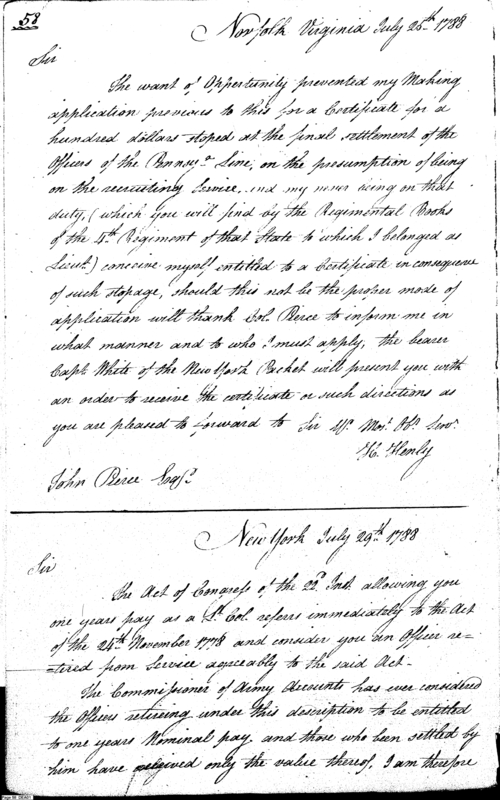 58
Norfolk Virginia July 26th 1788
Sir
The want of Oppertunity prevented my Making
application previous to this for a Certificate for a
hundred dollars stoped at the final settlement of the
Officers of the Pennsya. Line, on the presumption of being
on the recruiting Service, and my never being on that
duty, (which you will find by the Regimental Books
of the 4th Regiment of that State to which I belonged as
Lieut.) conceive myself entitled to a Certificate in consequence
of such stopage, should this not be the proper mode of
application will thank Col. Pierce to inform me in
what manner and to who I must apply, the bearer
Capt. White of the New York Packet will present you with
an order to receive the certificate or such directions as
you are pleased to forward to Sir Yr. Mot. Obt. Servt.
H. Henly
John Pierce Esqr.
New York July 29th 1788
Sir
The Act of Congress of the 22d. Inst. allowing you
one years pay as a Lt. Col. referrs immediately to the Act
of the 24th November 1778 and consider you an Officer re-
-tired from Service agreeably to the said Act-
The Commissioner of Army Accounts has ever considered
the Officers retireing under this description to be entitled
to one years Nominal pay and those who been settled by
him have received only the value thereof. I am therefore